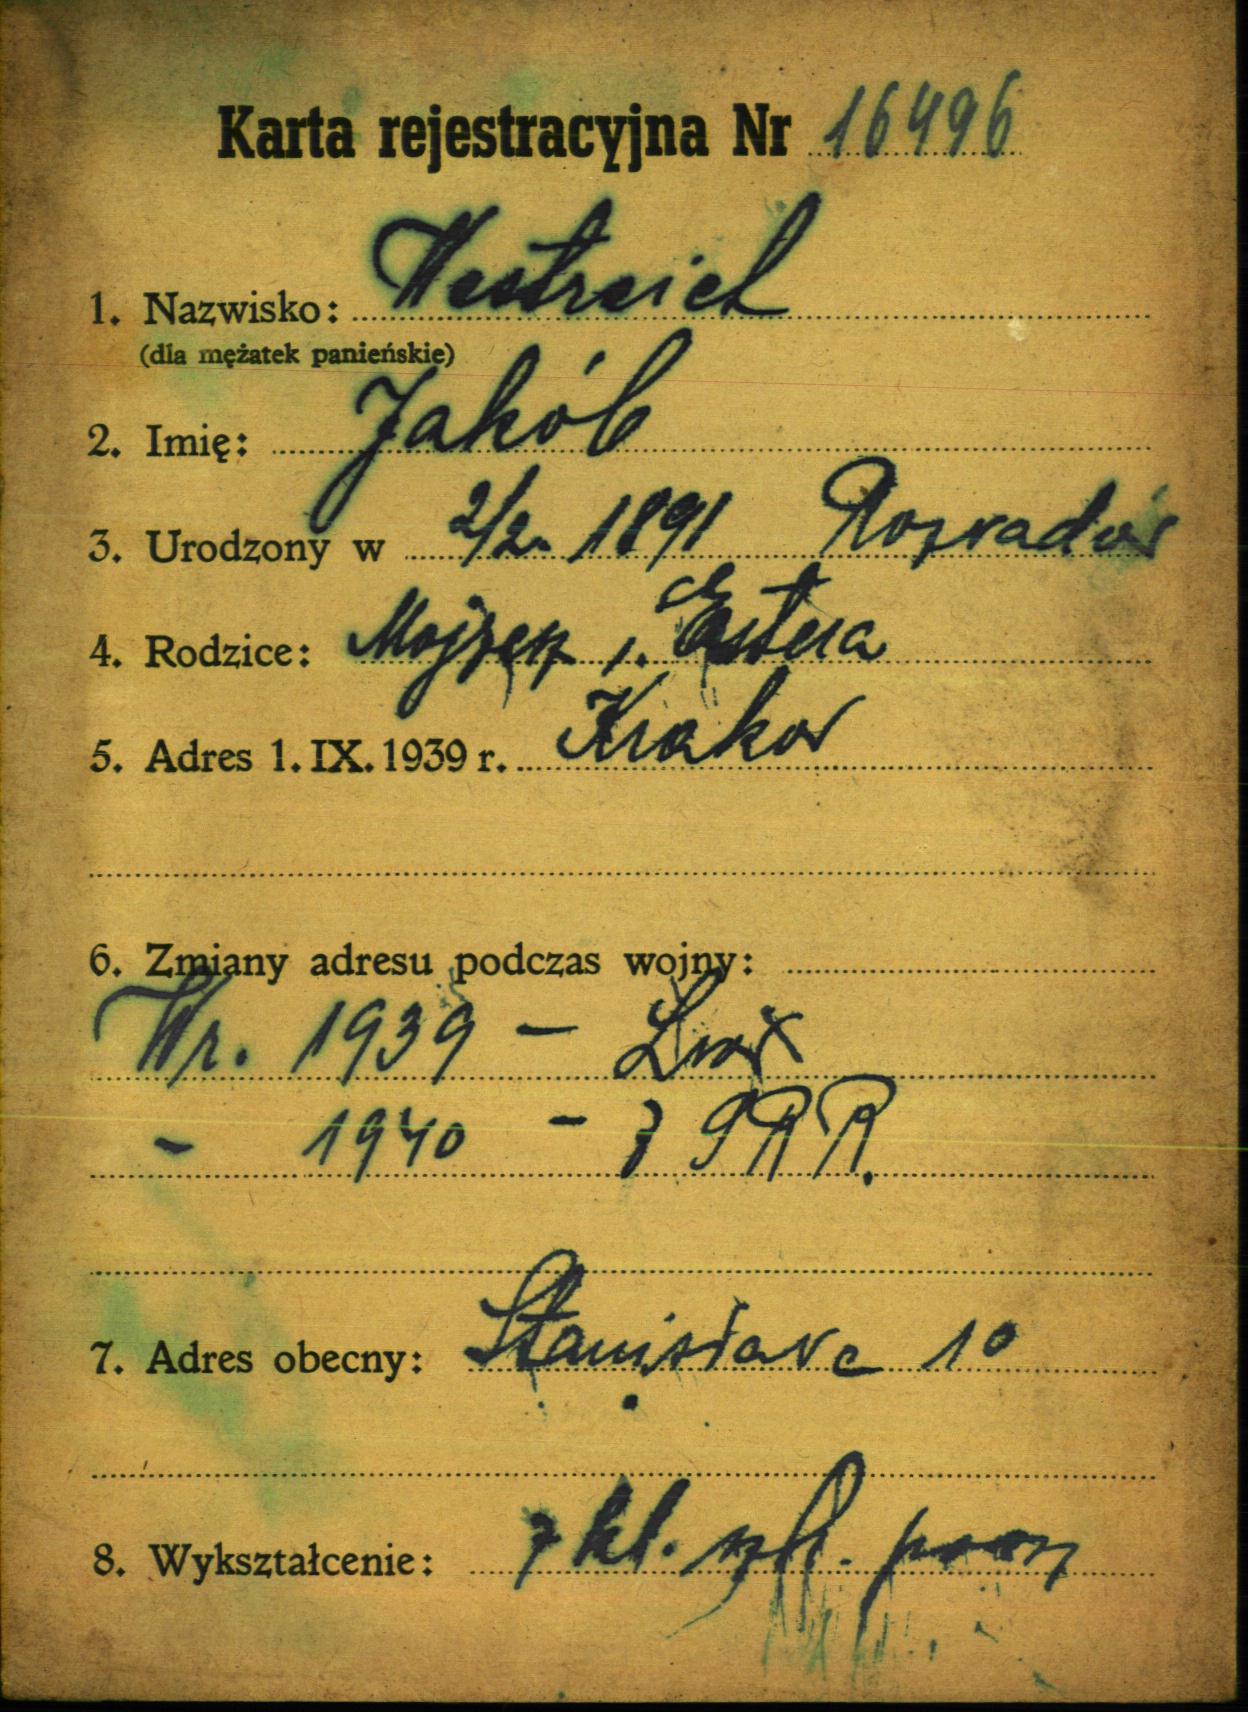 Karta rejestracyjna Nr 16496
1. Nazwisko: Westreich
(dla mężatek panieńskie)
2. Imię: Jakób
3. Urodzony w 2/2. 1891 Rozwadów
4. Rodzice: Mojżesz i. Estera
5. Adres 1. IX. 1939 r. Krakow
6. Zmiany adresu podczas wojny:
Wr. 1939 –
– 1940 –
7. Adres obecny: 10
8. Wykształcenie: 7 kl. szk.